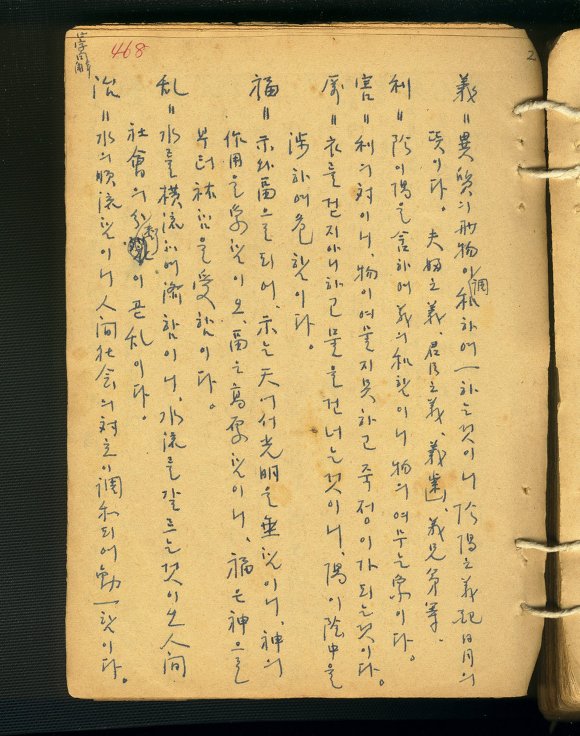 字解
468
義 = 異質의 兩物이 調和하여 一하는 것이니 陰陽之義配日月의
뜻이다。 夫婦之義、君臣之義、義業、義兄弟等、
利 = 陰이 陽을 含하여 義의 和함이니 物의 여무는 象이다。
害 = 利의 対이니、物이 여물지 못하고 죽정이가 되는 것이다。
厲 = 衣를 걷지 아니하고 물을 건너는 것이니、陽이 陰中을
涉하여 危함이다。
福 = 示 外 畐으로 되어、示는 天에서 光明을 垂함이니、神의
作用을 象함이오、畐은 高厚함이니、福은 神으로
부터 祐함을 受함이다。
乱 = 水를 橫流에 渝함이니、水流를 갈르는 것이오 人間
社會의 分이 곧 乱이다。
治 = 水의 順流함이니 人间社会의 対立이 調和되어 動一함이다。
2